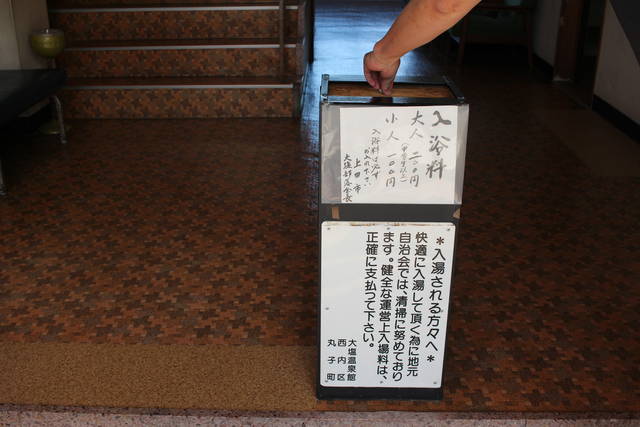 入浴料
大人 二〇〇円
(中学生以上)
小人 一〇〇円
入浴料は必ず
お入れ下さい
上田市
大塩部落会長
*入湯される方々へ*
快適に入湯して頂く為に地元
自治会では、清掃に努めており
ます。健全な運営上入場料は、
正確に支払って下さい。
大塩温泉館
西内区
丸子町